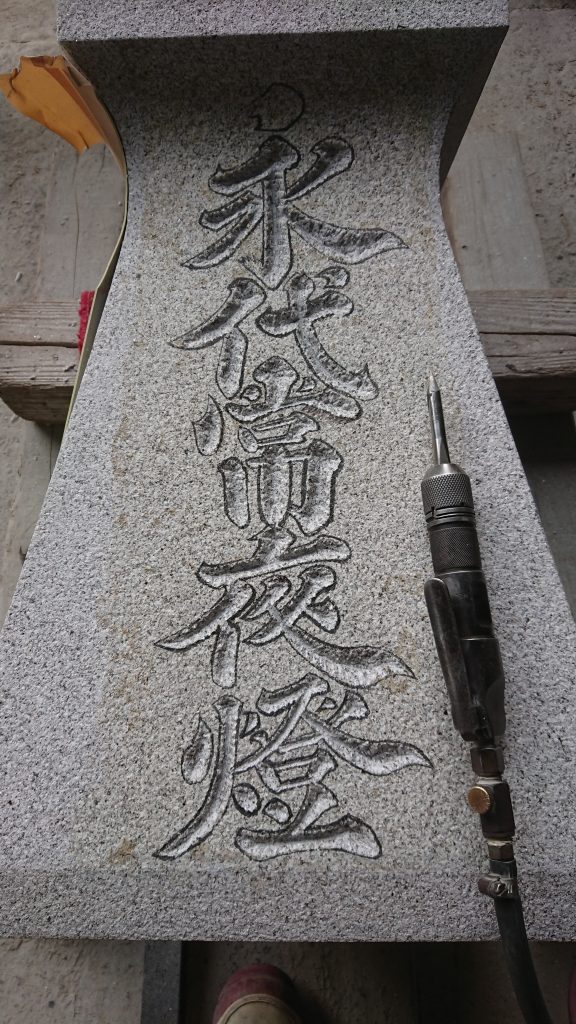 永代常夜燈